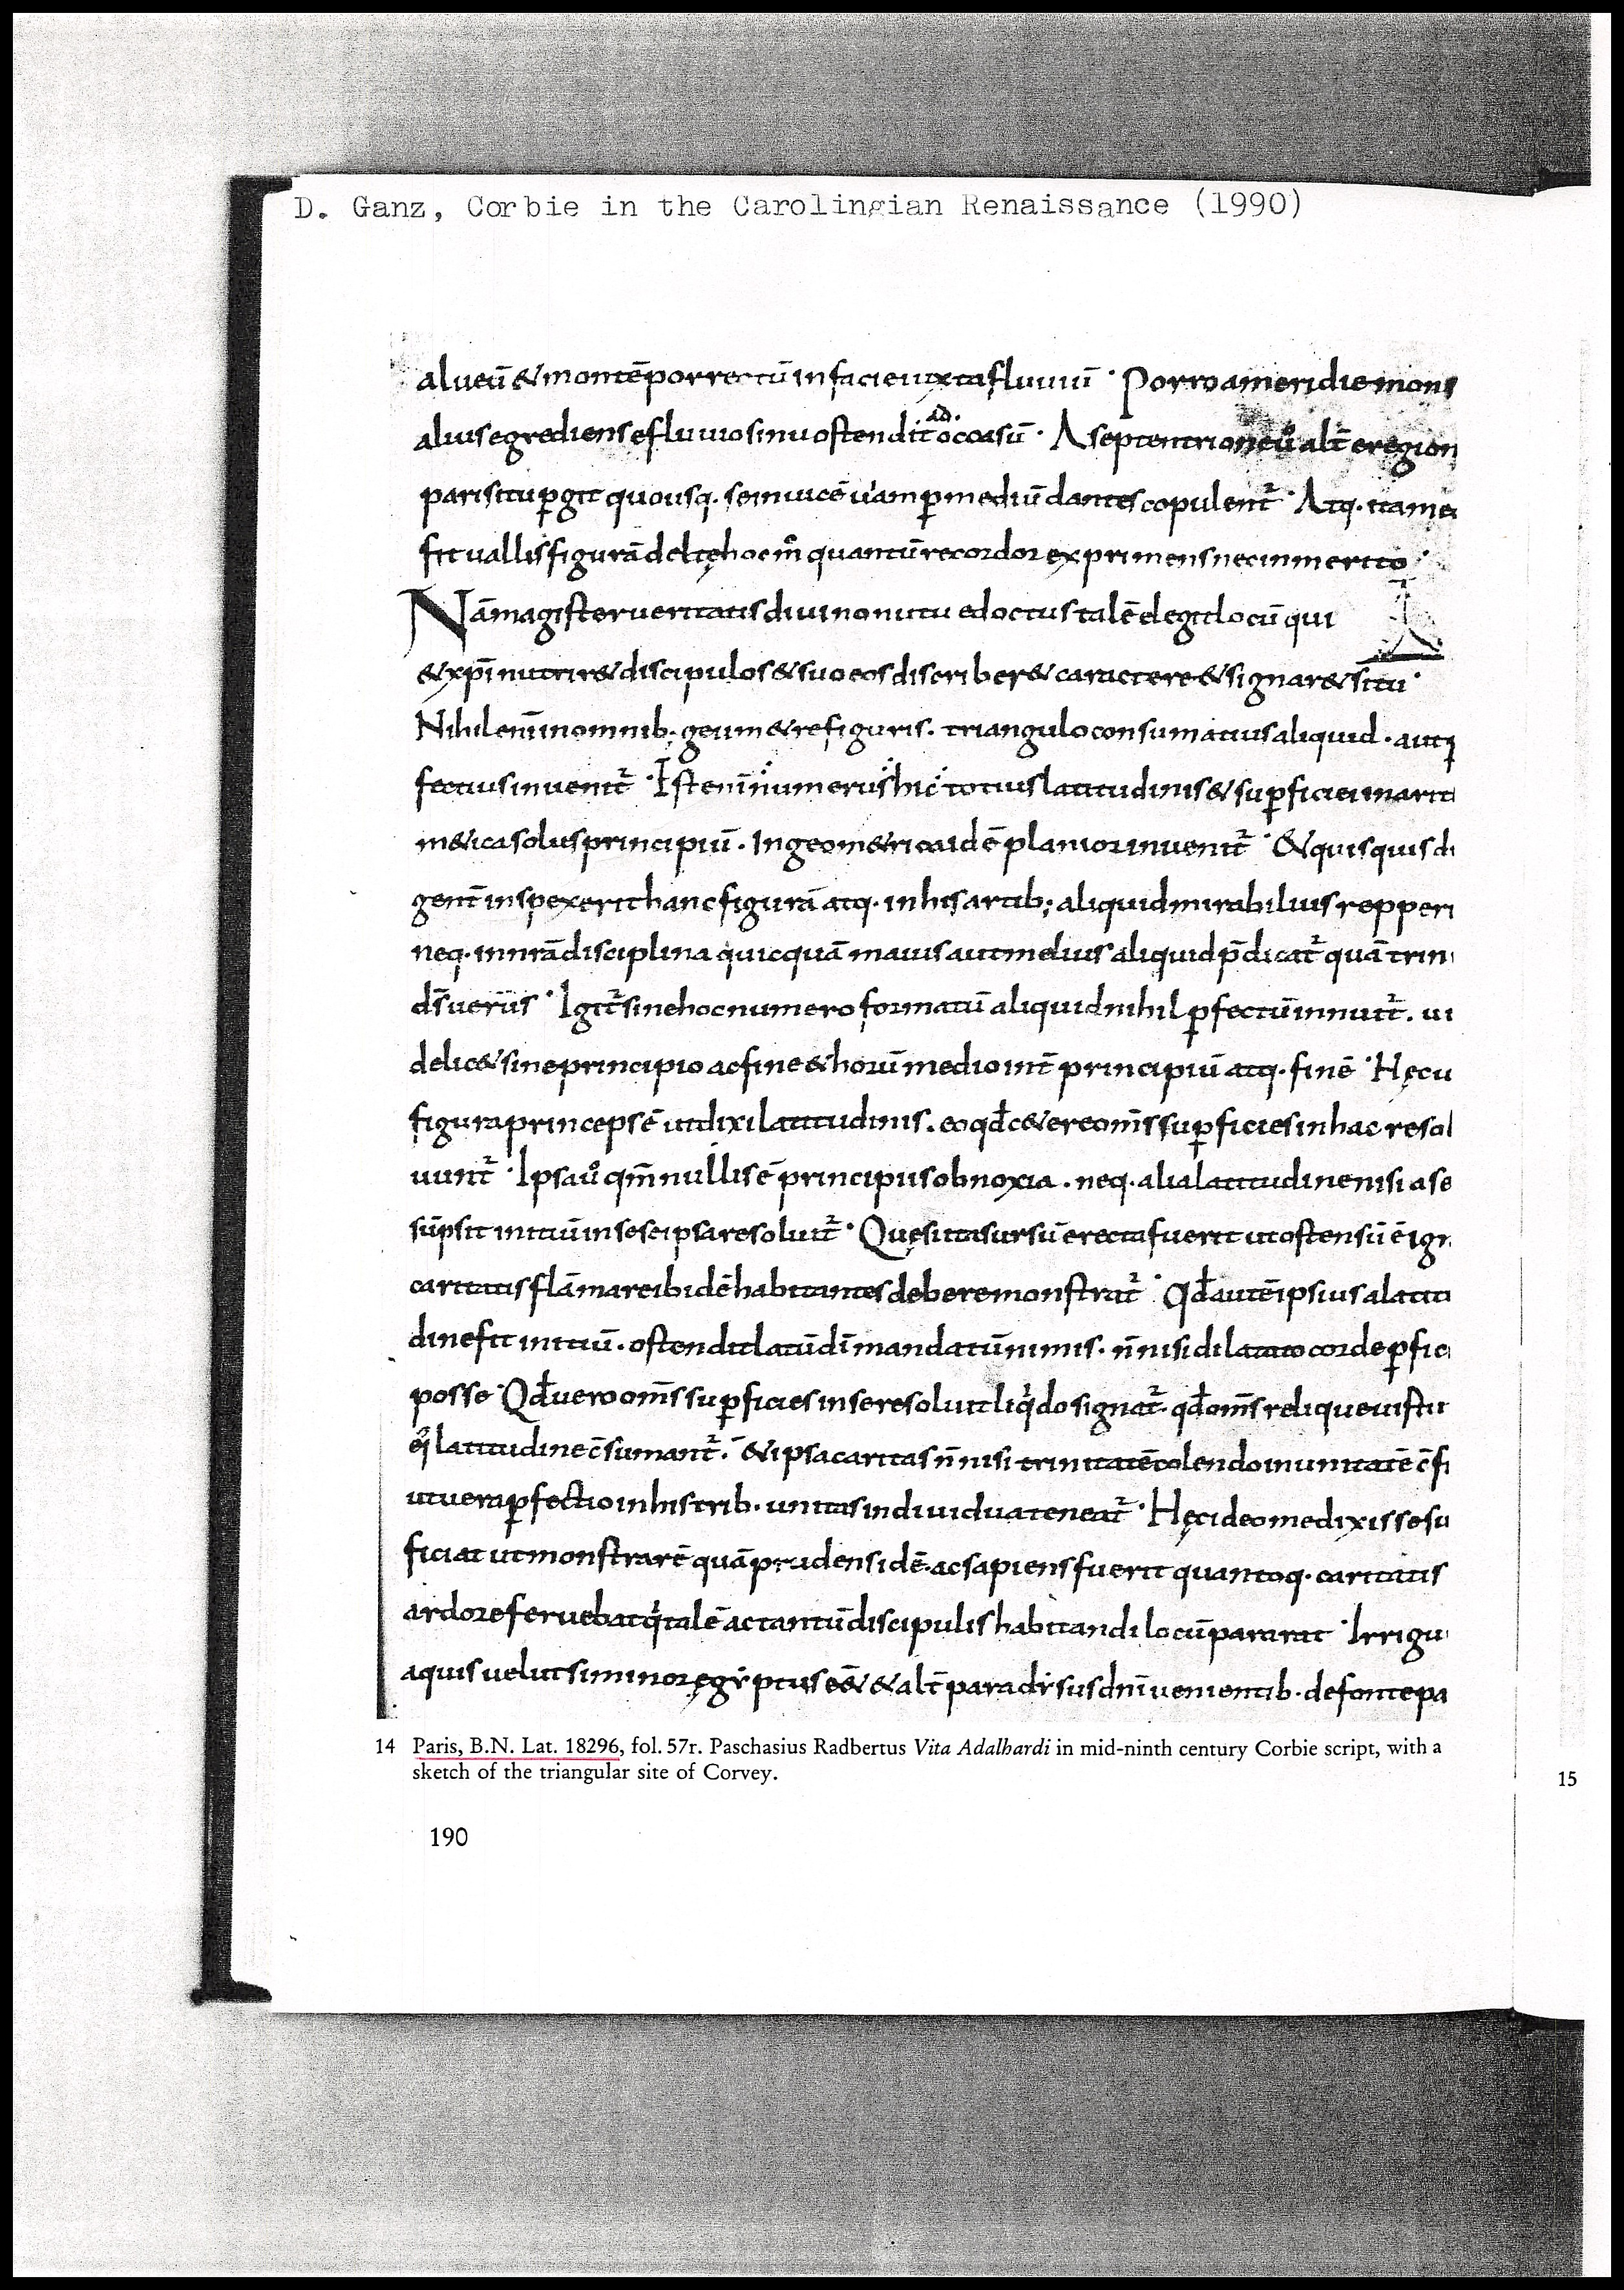 D. Ganz, Corbie in the Carolingian Renaissance (1990)
alueū & montē porrectū in facie iuxta fluuiū · Porro a meridie mons
alius egrediens e fluuio sinu ostendit ad occasū · A septentrione ů alt̄ e region
pari situ ꝑgit quousq· se inuicē uiam ꝑ mediū dantes copulent̃ · Atq· ita me
fit uallis figurā deltę hoc m̊ quantū recordor exprimens nec inmerito ·
Nā magister ueritatis diuino nutu edoctus talē elegit locū qui
& xp̄i nutrir& discipulos & suo eos discriber& caractere & signar& situ ·
Nihil enī in omnib; geum&re figuris · triangulo consumatius aliquid · aut ꝑ
fectius inuenit̃ · Iste nī numerus hic totius latitudinis & suꝑficiei in arit
m&ica solus principiū · In geom&rica idē planior inuenit̃ · & quisquis di
gent̄ inspexerit hanc figurā atq· in his artib; aliquid mirabilius repperi
neq· in n̄rā disciplina quicquā maius aut melius aliquid p̄dicat̃ quā trin
d̄s uerus · Igit̃ sine hoc numero formatū aliquid nihil ꝑfectū innuit̃ · ui
delic& sine principio ac fine & horū medio int̄ principiū atq· finē · Hęc u
figura princeps ē ut dixi latitudinis · eo qd̄ c&ere om̄s suꝑficies in hac resol
uunt̃ · Ipsa ů qm̄ nullis ē principiis obnoxia · neq· alia latitudine nisi a se
sūpsit initiū in sese ipsa resoluit̃ · Quę si ita sursū erecta fuerit ut ostensū ē ign
caritatis flāmare ibidē habitantes debere monstrat̃ · Qd̄ autē ipsius a latitu
dine fit initiū · ostendit latū dī mandatū nimis · n̄ nisi dilatato corde ꝑfic
posse · Qd̄ uero om̄s suꝑficies in se resoluit liq̇do signat̃ · qd̄ om̄s reliquę uirtu
latitudine c̄sumant̃ · & ipsa caritas n̄ nisi trinitatē colendo in unitatē c̄fi
ut uera ꝑfectio in his trib· unitas indiuidua teneat̃ · Hęc ideo me dixisse su
ficiat ut monstrarē quā prudens idē · ac sapiens fuerit quantoq· caritatis
ardore feruebat q̇ talē ac tantū discipulis habitandi locū pararat · Irrigu
aquis uelut si minor ęgẏptus ēē& & alt̄ paradẏsus dn̄i uenientib· de fonte pa
14 Paris, B.N. Lat. 18296, fol. 57r. Paschasius Radbertus Vita Adalhardi in mid-ninth century Corbie script, with a
sketch of the triangular site of Corvey.
15
190